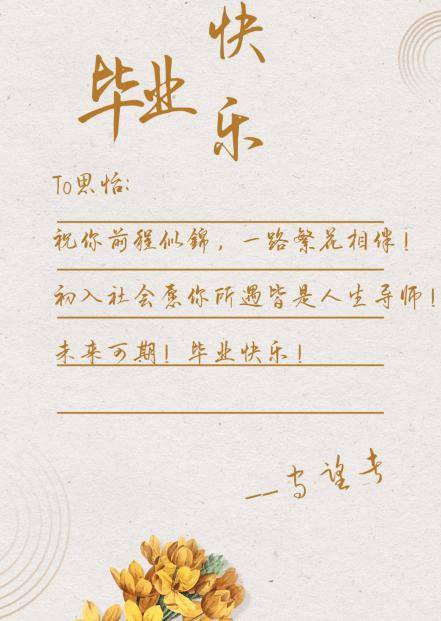 毕业快乐
To思怡:
祝你前程似锦，一路繁花相伴！
初入社会愿你所遇皆是人生导师！
未来可期！毕业快乐！